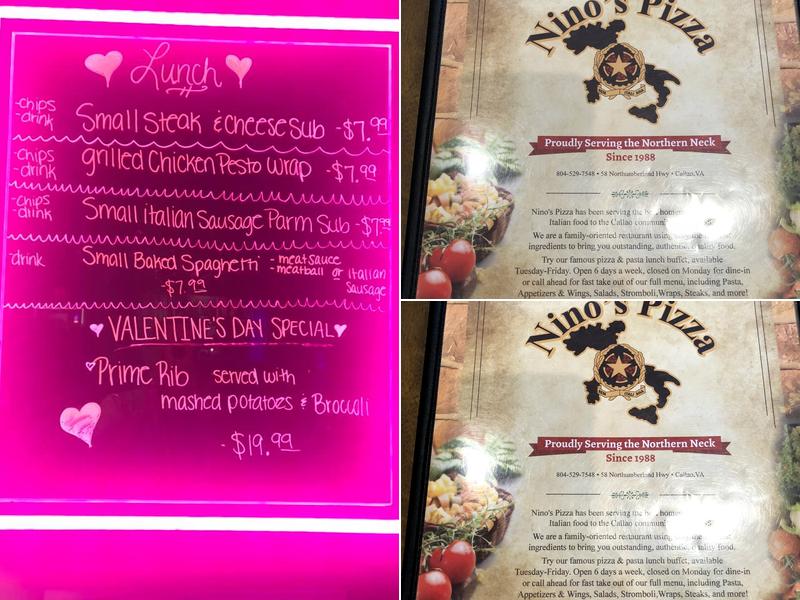 Lunch
-chips
-drink
Small Steak & Cheese Sub -$7.99
-chips
-drink
grilled Chicken Pesto Wrap -$7.99
-chips
-drink
Small italian Sausage Parm Sub -$7.99
-drink
Small Baked Spaghetti
-meat sauce
-meatball or Italian
Sausage
-$7.99
VALENTINE'S DAY SPECIAL
Prime Rib served with
mashed potatoes & Broccoli
-$19.99
Nino's Pizza
Proudly Serving the Northern Neck
Since 1988
804-529-7548 • 58 Northumberland Hwy • Callao,VA
Nino's Pizza has been serving the
Italian food to the Callao
We are a family-oriented restaurant using
ingredients to bring you outstanding, food.
Try our famous pizza & pasta lunch buffet, available
Tuesday-Friday. Open 6 days a week, closed on Monday for dine-in
or call ahead for fast take out of our full menu, including Pasta,
Appetizers & Wings, Salads, Stromboli,Wraps, Steaks, and more!
Nino's Pizza
Proudly Serving the Northern Neck
Since 1988
804-529-7548 • 58 Northumberland Hwy • Callao,VA
Nino's Pizza has been serving the
Italian food to the Callao
We are a family-oriented restaurant using
ingredients to bring you outstanding, food.
Try our famous pizza & pasta lunch buffet, available
Tuesday-Friday. Open 6 days a week, closed on Monday for dine-in
or call ahead for fast take out of our full menu, including Pasta,
Appetizers & Wings, Salads, Stromboli,Wraps, Steaks, and more!